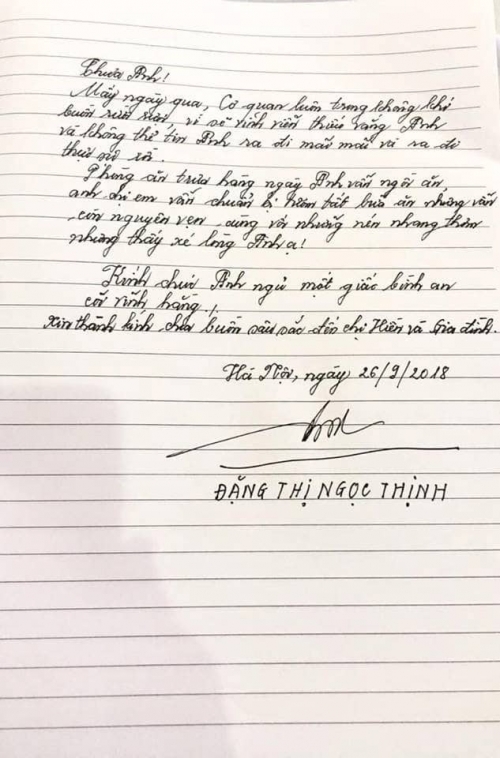 Thưa Anh!
Mấy ngày qua, Cơ quan luôn trong không khí
buồn rười rượi, vì sẽ vĩnh viễn thiếu vắng Anh
và không thể tin Anh ra đi mãi mãi và ra đi
thực sự rồi.
Phòng ăn trưa hàng ngày Anh vẫn ngồi ăn,
anh chị em vẫn chuẩn bị hôm bát bữa ăn nhưng vẫn
còn nguyên vẹn, cùng với những nén nhang thơm
nhưng thấy xé lòng Anh ạ!
Kính chúc Anh ngủ một giấc bình an
cõi vĩnh hằng!
Xin thành kính chia buồn sâu sắc đến chị Hiền và Gia đình.
Hà Nội, ngày 26/9/2018
ĐẶNG THỊ NGỌC THỊNH